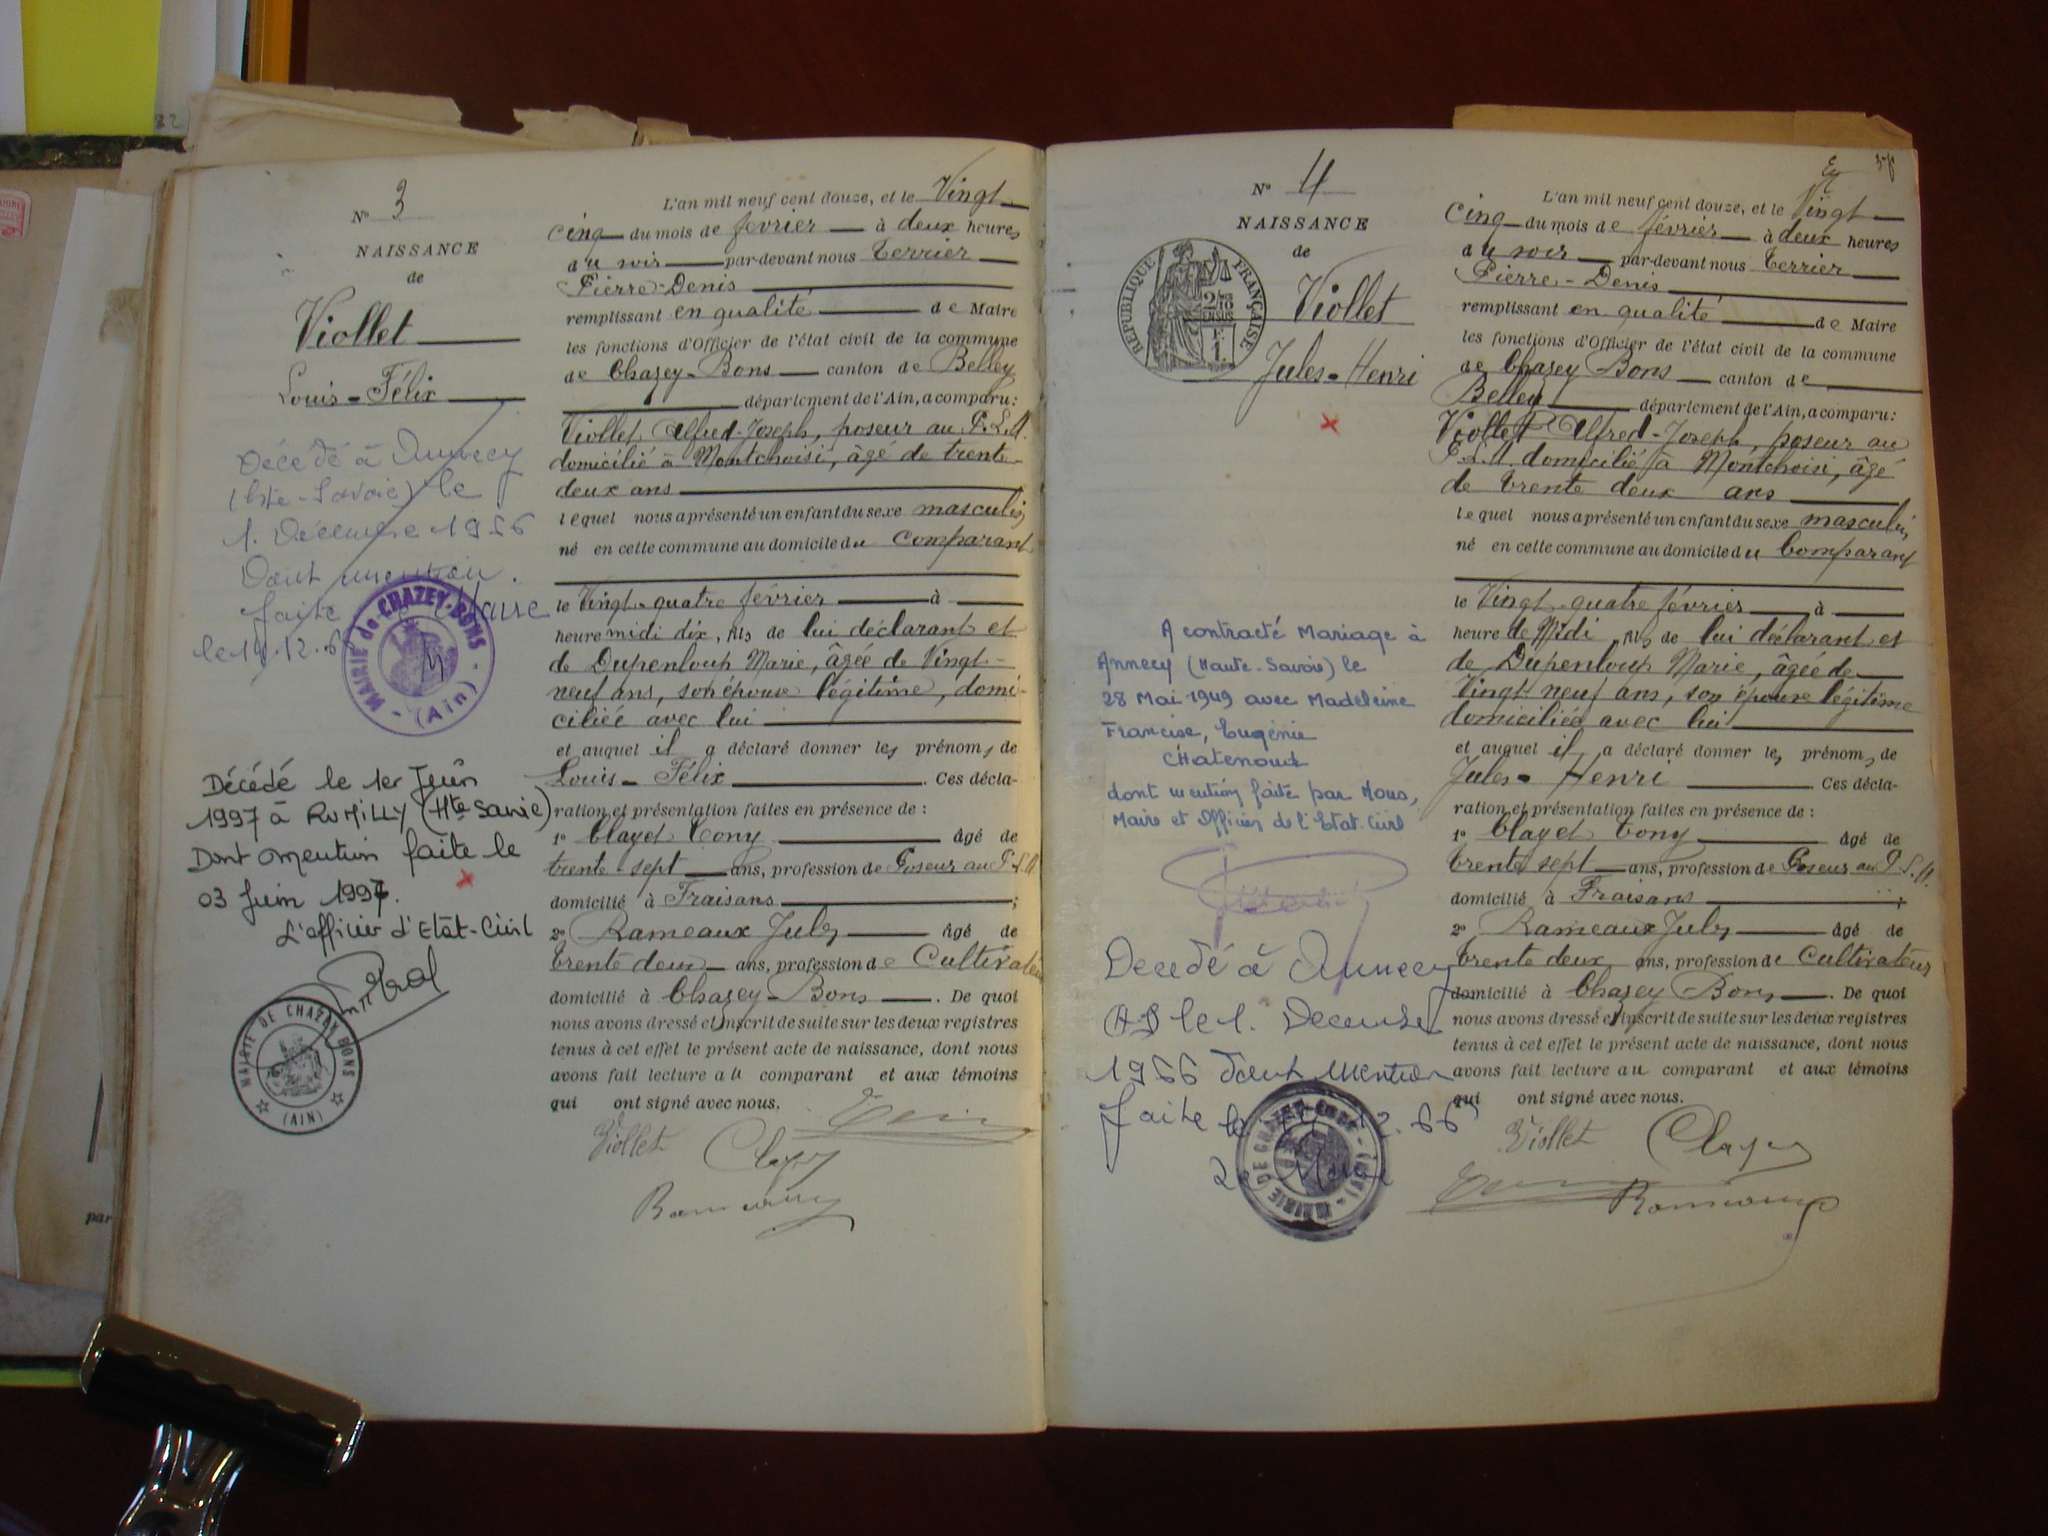 N° 3
NAISSANCE
de
Viollet
Louis-Félix
Décédé à Annecy
(Hte-Savoie) le
1. Décembre 1966
Dont mention
faite
le 14.12.66
MAIRIE de CHAZEY-BONS
(Ain)
Décédé le 1er Juin
1997 à RUMILLY (Hte Savoie)
Dont mention faite le
03 Juin 1997.
L'officier d'Etat-Civil
MAIRIE DE CHAZEY BONS
(AIN)
L'an mil neuf cent douze, et le Vingt
cinq du mois de février à deux heures
du soir par-devant nous Terrier
Pierre-Denis
remplissant en qualité de Maire
les fonctions d'Officier de l'état civil de la commune
de Chazey-Bons canton de Belley
département de l'Ain, a comparu:
Viollet Alfred-Joseph, poseur au P.L.M.
domicilié à Montchoisi, âgé de trente
deux ans
lequel nous a présenté un enfant du sexe masculin
né en cette commune au domicile du comparant
le Vingt-quatre février à
heure midi dix, fils de lui déclarant et
de Dupenloup Marie, âgée de Vingt-
neuf ans, son épouse légitime, domi-
ciliée avec lui
et auquel il a déclaré donner les prénoms de
Louis-Félix . Ces décla-
ration et présentation faites en présence de :
1° Clayet Tony âgé de
trente-sept ans, profession de Poseur au P.L.M
domicilié à Fraisans ;
2° Rameaux Jules âgé de
trente deux ans, profession de Cultivateur
domicilié à Chazey-Bons . De quoi
nous avons dressé et inscrit de suite sur les deux registres
tenus à cet effet le présent acte de naissance, dont nous
avons fait lecture au comparant et aux témoins
qui ont signé avec nous.
Viollet Clayet
Rameaux
N° 4
NAISSANCE
de
Viollet
Jules-Henri
REPUBLIQUE FRANÇAISE
A contracté Mariage à
Annecy (Haute-Savoie) le
28 Mai 1949 avec Madeleine
Francise, Eugénie
Chatenoud
dont mention faite par Nous,
Maire et Officier de l'Etat-Civil
Décédé à Annecy
H.S le 1. Decembre
1966 dont mention
faite le 12.66
MAIRIE DE CHAZEY-BONS (AIN)
L'an mil neuf cent douze, et le Vingt
cinq du mois de février à deux heures
du soir par-devant nous Terrier
Pierre-Denis
remplissant en qualité de Maire
les fonctions d'Officier de l'état civil de la commune
de Chazey Bons canton de
Belley département de l'Ain, a comparu:
Viollet Alfred-Joseph, poseur au
P.L.M. domicilié à Montchoisi, âgé
de trente deux ans
lequel nous a présenté un enfant du sexe masculin
né en cette commune au domicile du Comparant
le Vingt-quatre février à
heure de Midi, fils de lui déclarant et
de Dupenloup Marie, âgée de
Vingt neuf ans, son épouse légitime
domiciliée avec lui
et auquel il a déclaré donner les prénoms de
Jules-Henri Ces décla-
ration et présentation faites en présence de :
1° Clayet Tony âgé de
trente sept ans, profession de Poseur au P.L.M.
domicilié à Fraisans ;
2° Rameaux Jules âgé de
trente deux ans, profession de Cultivateur
domicilié à Chazey Bons . De quoi
nous avons dressé et inscrit de suite sur les deux registres
tenus à cet effet le présent acte de naissance, dont nous
avons fait lecture au comparant et aux témoins
qui ont signé avec nous.
Viollet Clayet
Rameaux